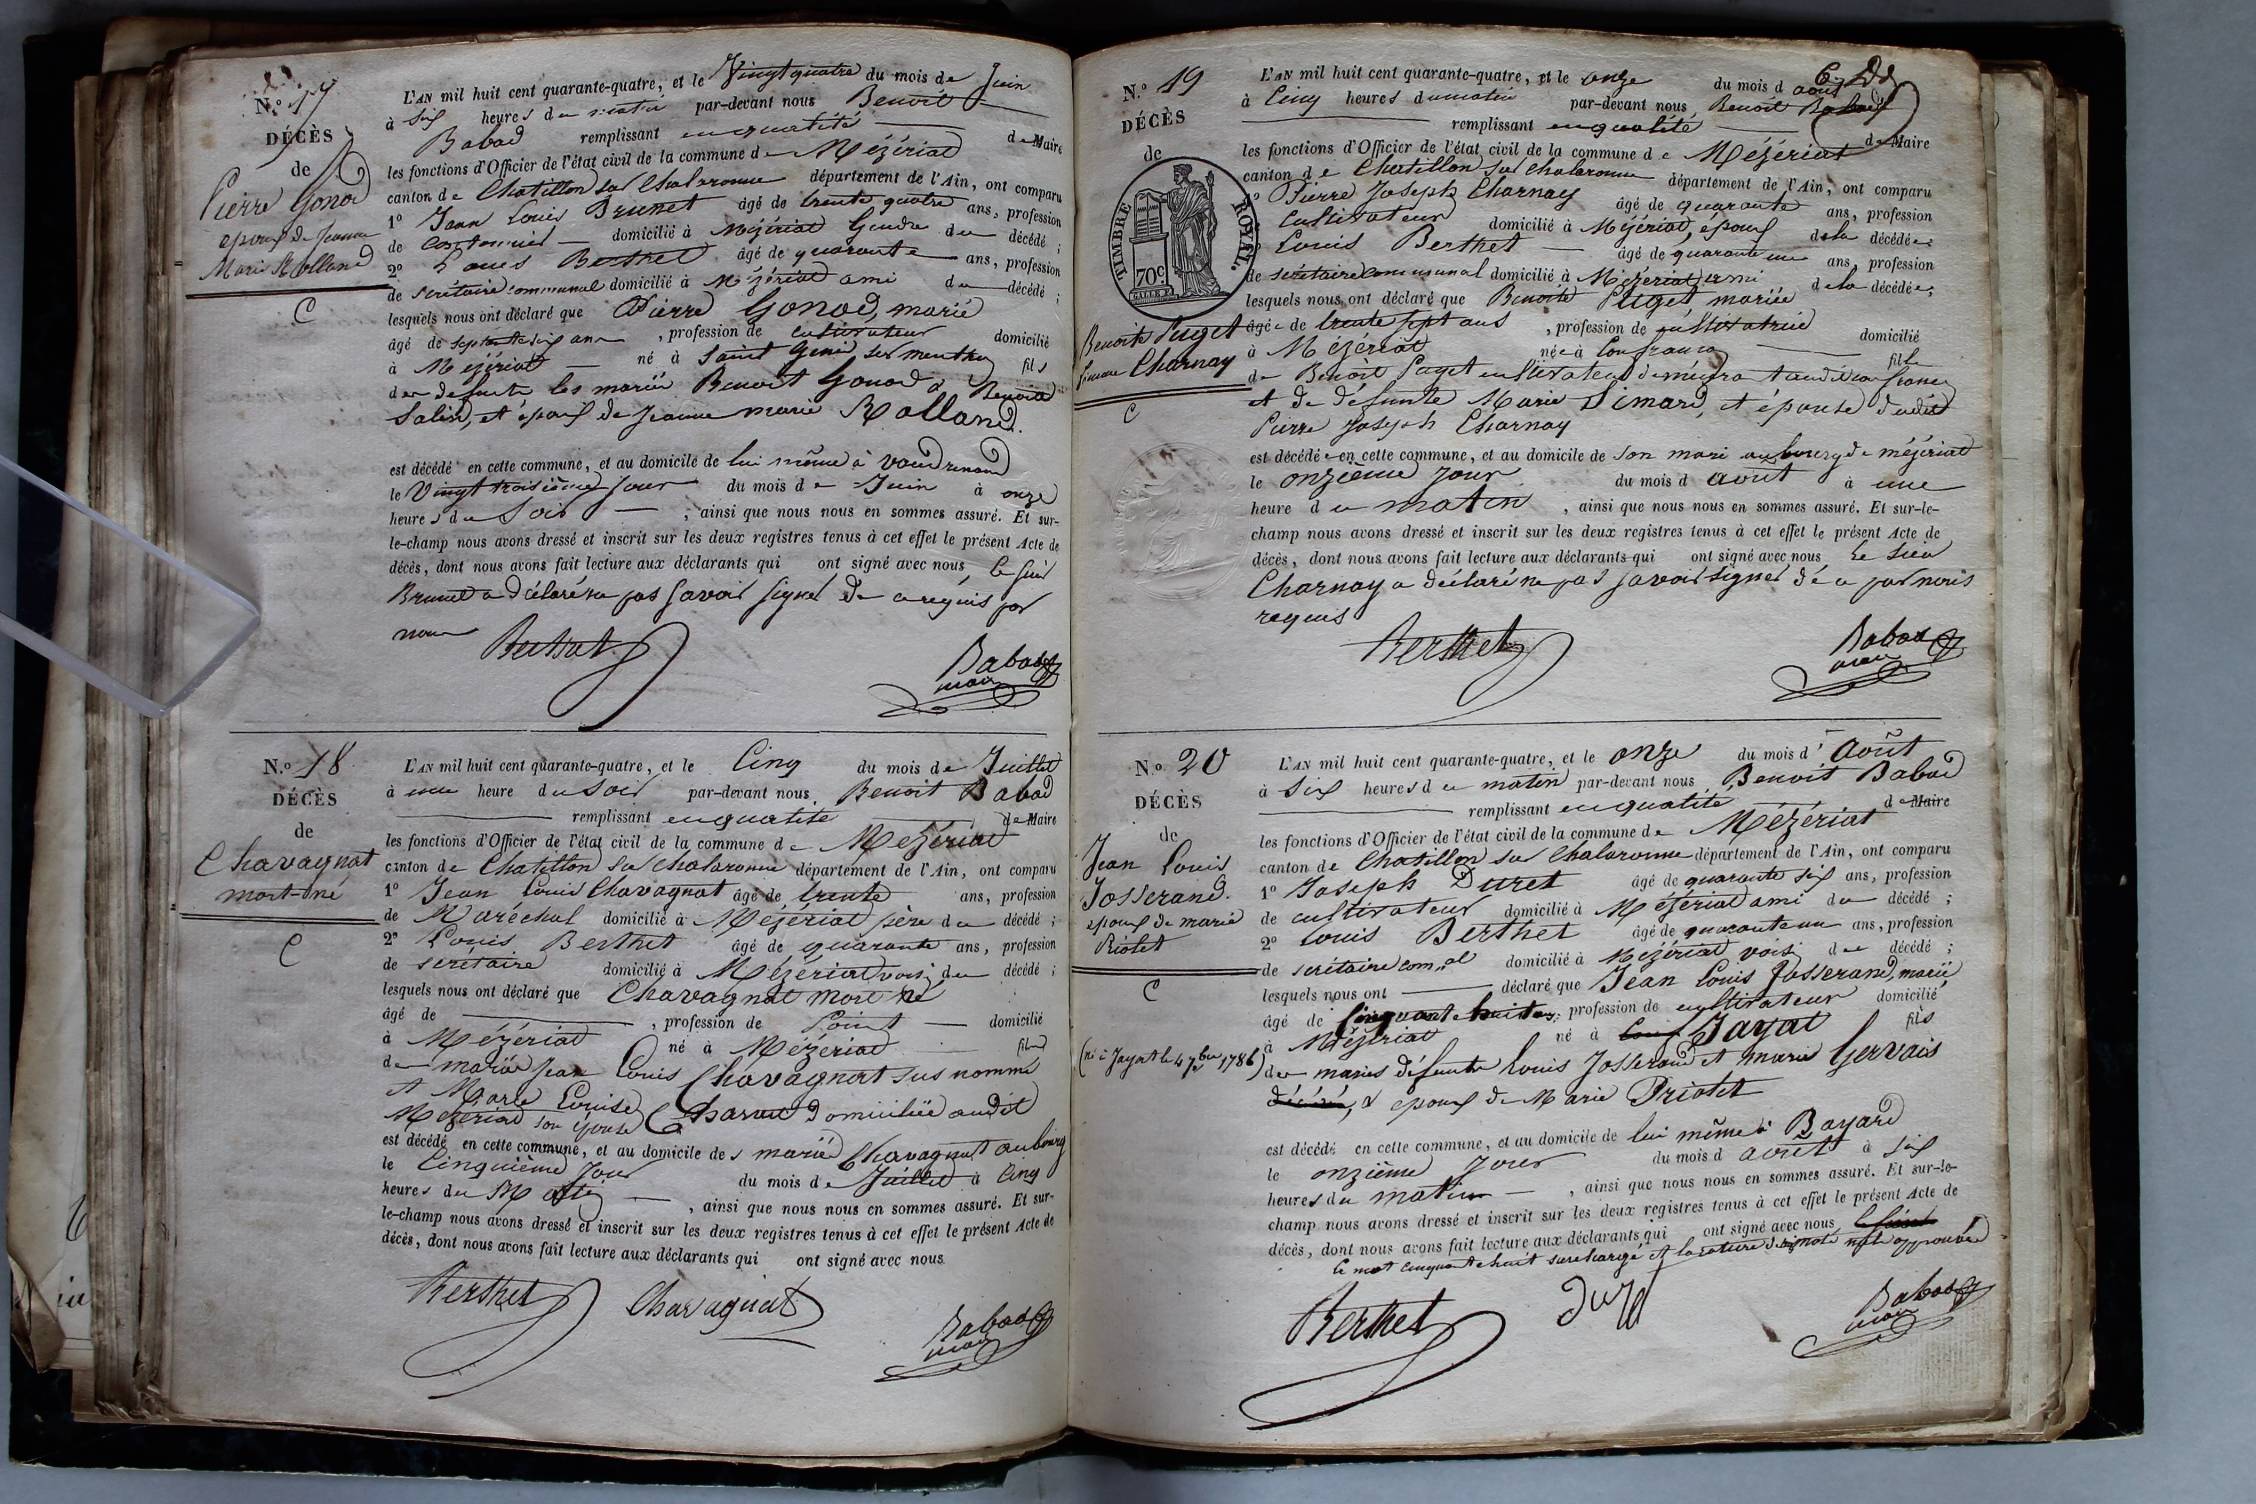 N.º 17
DÉCÈS
de
Pierre Gonod
époux de Jeanne
Marie Rolland
C
L'AN mil huit cent quarante-quatre, et le Vingt quatre du mois de Juin
à six heures du matin par-devant nous Benoit
Babad remplissant en qualité de Maire
les fonctions d'Officier de l'état civil de la commune de Mézériat
canton de Chatillon sur Chalaronne département de l'Ain, ont comparu
1º Jean Louis Brunet âgé de trente quatre ans, profession
de cordonnier domicilié à Mézériat Gendre du décédé ;
2º Louis Berthet âgé de quarante ans, profession
de secrétaire communal domicilié à Mézériat ami du décédé ;
lesquels nous ont déclaré que Pierre Gonod, marié
âgé de septante six ans, profession de cultivateur domicilié
à Mézériat né à Saint Genis sur menthon fils
des defunts les mariés Benoit Gonod & Benoite
Salin, et époux de Jeanne marie Rolland.
est décédé en cette commune, et au domicile de lui même à Vaudrenand
le Vingt troisième jour du mois de Juin à onze
heures du Soir, ainsi que nous nous en sommes assuré. Et sur-
le-champ nous avons dressé et inscrit sur les deux registres tenus à cet effet le présent Acte de
décès, dont nous avons fait lecture aux déclarants qui ont signé avec nous le sieur
Brunet a déclaré ne pas savoir signer de ce requis par
nous
Berthet
Babad
maire
N.º 18
DÉCÈS
de
Chavagnat
mort-né
C
L'AN mil huit cent quarante-quatre, et le Cinq du mois de Juillet
à une heure du soir par-devant nous Benoit Babad
remplissant en qualité de Maire
les fonctions d'Officier de l'état civil de la commune de Mézériat
canton de Chatillon sur chalaronne département de l'Ain, ont comparu
1º Jean Louis Chavagnat âgé de trente ans, profession
de Maréchal domicilié à Mézériat père du décédé ;
2º Louis Berthet âgé de quarante ans, profession
de secrétaire domicilié à Mézériat voisin du décédé ;
lesquels nous ont déclaré que Chavagnat mort né
âgé de , profession de point domicilié
à Mézériat né à Mézériat fils
des mariés Jean Louis Chavagnat sus nommé
et Marie Louise domiciliée audit
Mézériat son épouse
est décédé en cette commune, et au domicile des mariés Chavagnat au bourg
le Cinquième jour du mois de Juillet à cinq
heures du Matin, ainsi que nous nous en sommes assuré. Et sur-
le-champ nous avons dressé et inscrit sur les deux registres tenus à cet effet le présent Acte de
décès, dont nous avons fait lecture aux déclarants qui ont signé avec nous
Berthet Chavagnat
Babad
maire
N.º 19
DÉCÈS
de
TIMBRE ROYAL.
70c
Benoite Puget
femme Charnay
C
L'AN mil huit cent quarante-quatre, et le onze du mois d août
à Cinq heures du matin par-devant nous Benoit Babad
remplissant en qualité de Maire
les fonctions d'Officier de l'état civil de la commune de Mézériat
canton de Chatillon sur chalaronne département de l'Ain, ont comparu
1º Pierre Joseph Charnay âgé de quarante ans, profession
Cultivateur domicilié à Mézériat, époux de la décédée ;
Louis Berthet âgé de quarante un ans, profession
de secrétaire communal domicilié à Mézériat ami de la décédée ;
lesquels nous ont déclaré que Benoite Puget mariée
âgée de trente sept ans, profession de cultivatrice domicilié
à Mézériat née à Confrançon fille
de Benoit Puget cultivateur demeurant audit confrançon
et de défunte Marie Simard, et épouse dudit
Pierre Joseph Charnay
est décédée en cette commune, et au domicile de son mari au bourg de mézériat
le onzième jour du mois d août à une
heure du matin, ainsi que nous nous en sommes assuré. Et sur-le-
champ nous avons dressé et inscrit sur les deux registres tenus à cet effet le présent Acte de
décès, dont nous avons fait lecture aux déclarants qui ont signé avec nous le sieur
Charnay a déclaré ne pas savoir signer de ce par nous
requis
Berthet
Babad
maire
N.º 20
DÉCÈS
de
Jean Louis
Josserand.
époux de marie
Priolet
C
(né à Jayat le 4 7bre 1786)
L'AN mil huit cent quarante-quatre, et le onze du mois d' Août
à Six heures du matin par-devant nous Benoit Babad
remplissant en qualité de Maire
les fonctions d'Officier de l'état civil de la commune de Mézériat
canton de Chatillon sur Chalaronne département de l'Ain, ont comparu
1º Joseph Duret âgé de quarante six ans, profession
de cultivateur domicilié à Mézériat ami du décédé ;
2º Louis Berthet âgé de quarante un ans, profession
de secrétaire com.al domicilié à Mézériat voisin du décédé ;
lesquels nous ont déclaré que Jean Louis Josserand, marié
âgé de Cinquante huit ans, profession de cultivateur domicilié
à Mézériat né à Jayat fils
des mariés défunts Louis Josserand et marie Gervais
& époux de Marie Priolet
est décédé en cette commune, et au domicile de lui même à Bayard
le onzième jour du mois d août à six
heures du matin, ainsi que nous nous en sommes assuré. Et sur-le-
champ nous avons dressé et inscrit sur les deux registres tenus à cet effet le présent Acte de
décès, dont nous avons fait lecture aux déclarants qui ont signé avec nous
le mot cinquante huit surchargé et la rature approuvée
Berthet
Babad
maire